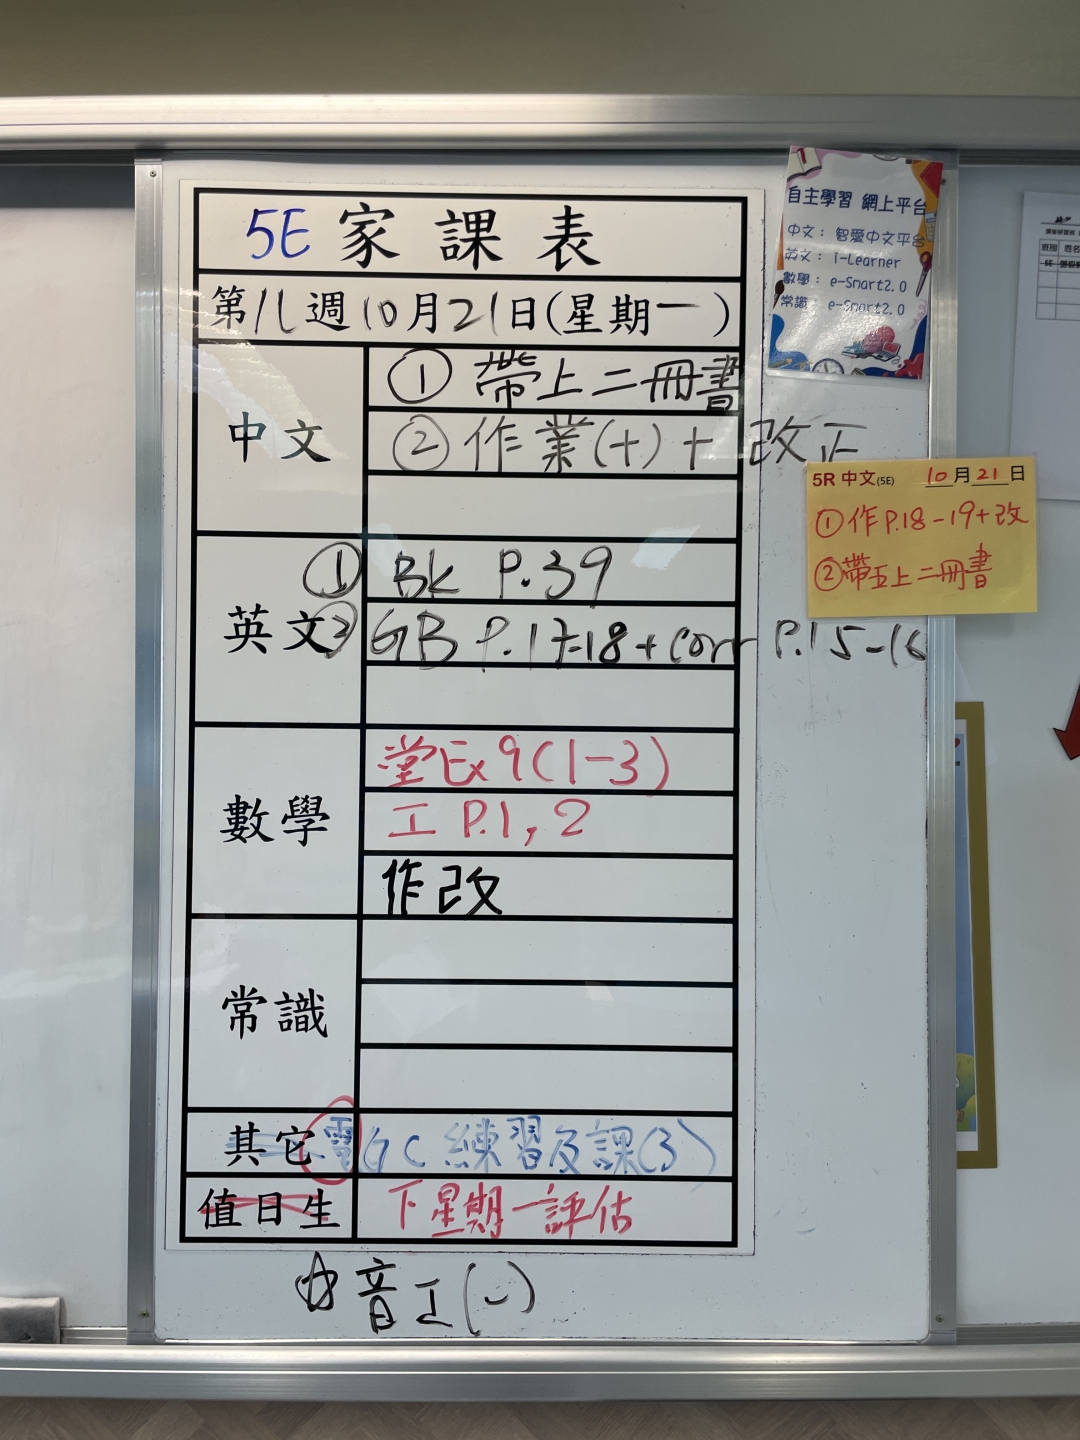 5E 家課表
第11週10月21日(星期一)
中文
① 帶上二冊書
② 作業(十)+改正
英文
① BK P.39
② GB P.17-18+corr P.15-16
數學
堂Ex 9(1-3)
工 P.1, 2
作改
常識
其它
電 GC 練習及課(3)
值日生
下星期一評估
音工(一)
自主學習 網上平台
中文: 智愛中文平台
英文: i-Learner
數學: e-Smart2.0
常識: e-Smart2.0
5R 中文(5E) 10月21日
①作P.18-19+改
②帶五上二冊書
班別 姓名
5E